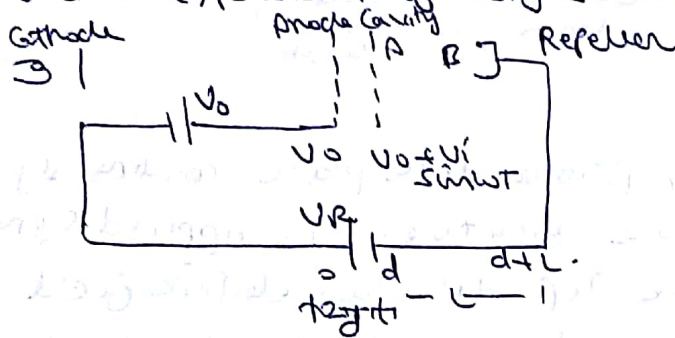 Cathode Anode Cavity
A B Repeller
V0
V0 V0 + Vi
sinωT
VR
0 d d+L.
L